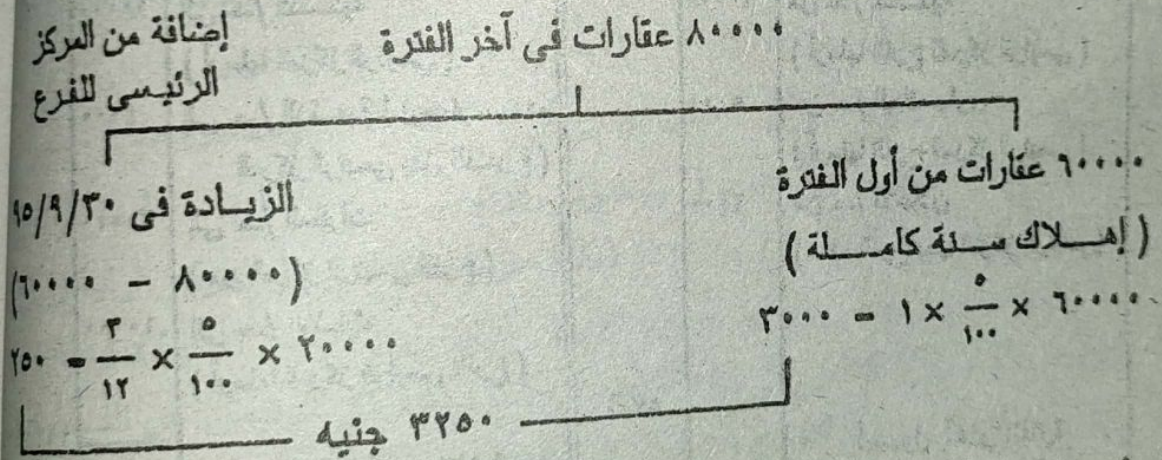 ٨٠٠٠٠ عقارات فى آخر الفترة
إضافة من المركز
الرئيسى للفرع
٦٠٠٠٠ عقارات من أول الفترة
( إهلاك سنة كاملة )
٦٠٠٠٠ × ٥/١٠٠ × ١ = ٣٠٠٠
الزيادة فى ٩٥/٩/٣٠
(٨٠٠٠٠ – ٦٠٠٠٠)
٢٠٠٠٠ × ٥/١٠٠ × ٣/١٢ = ٢٥٠
٣٢٥٠ جنيه